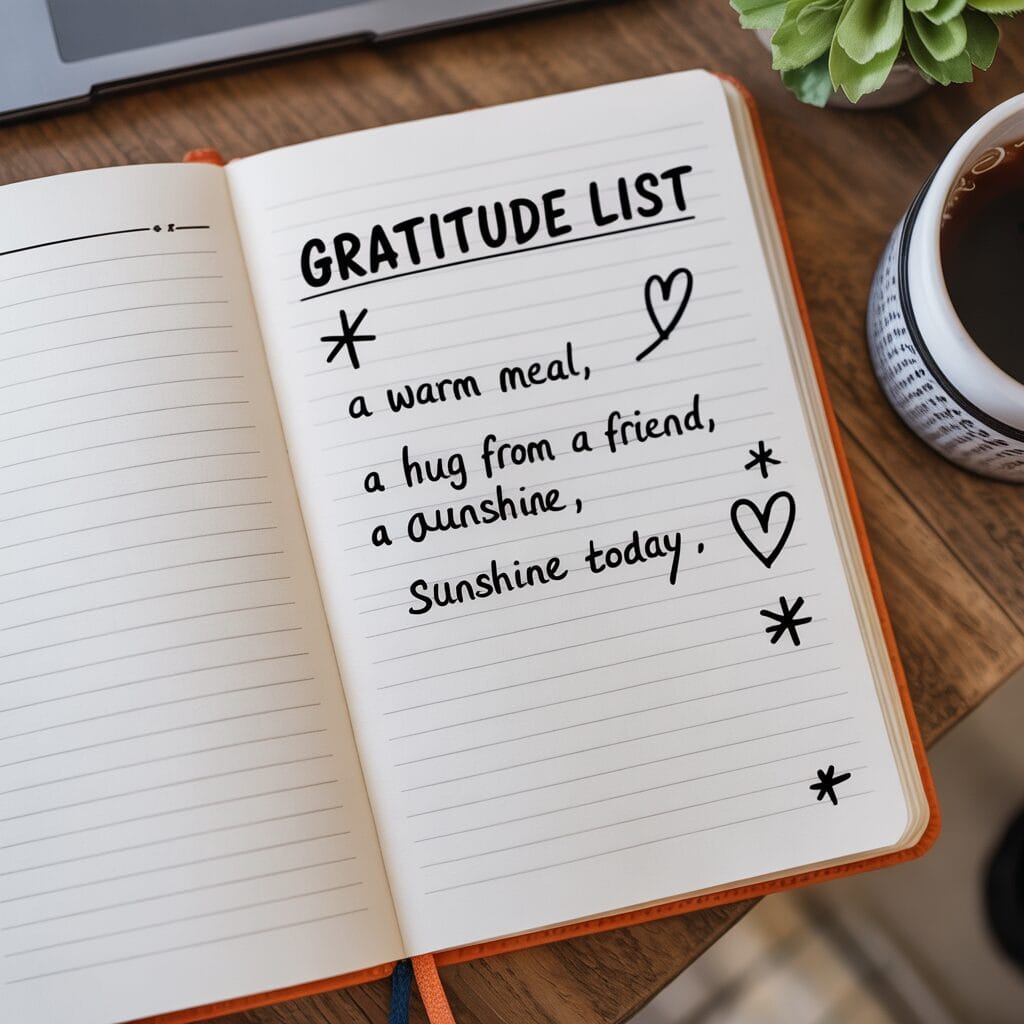 GRATITUDE LIST
a warm meal,
a hug from a friend,
a aunshine,
Sunshine today.